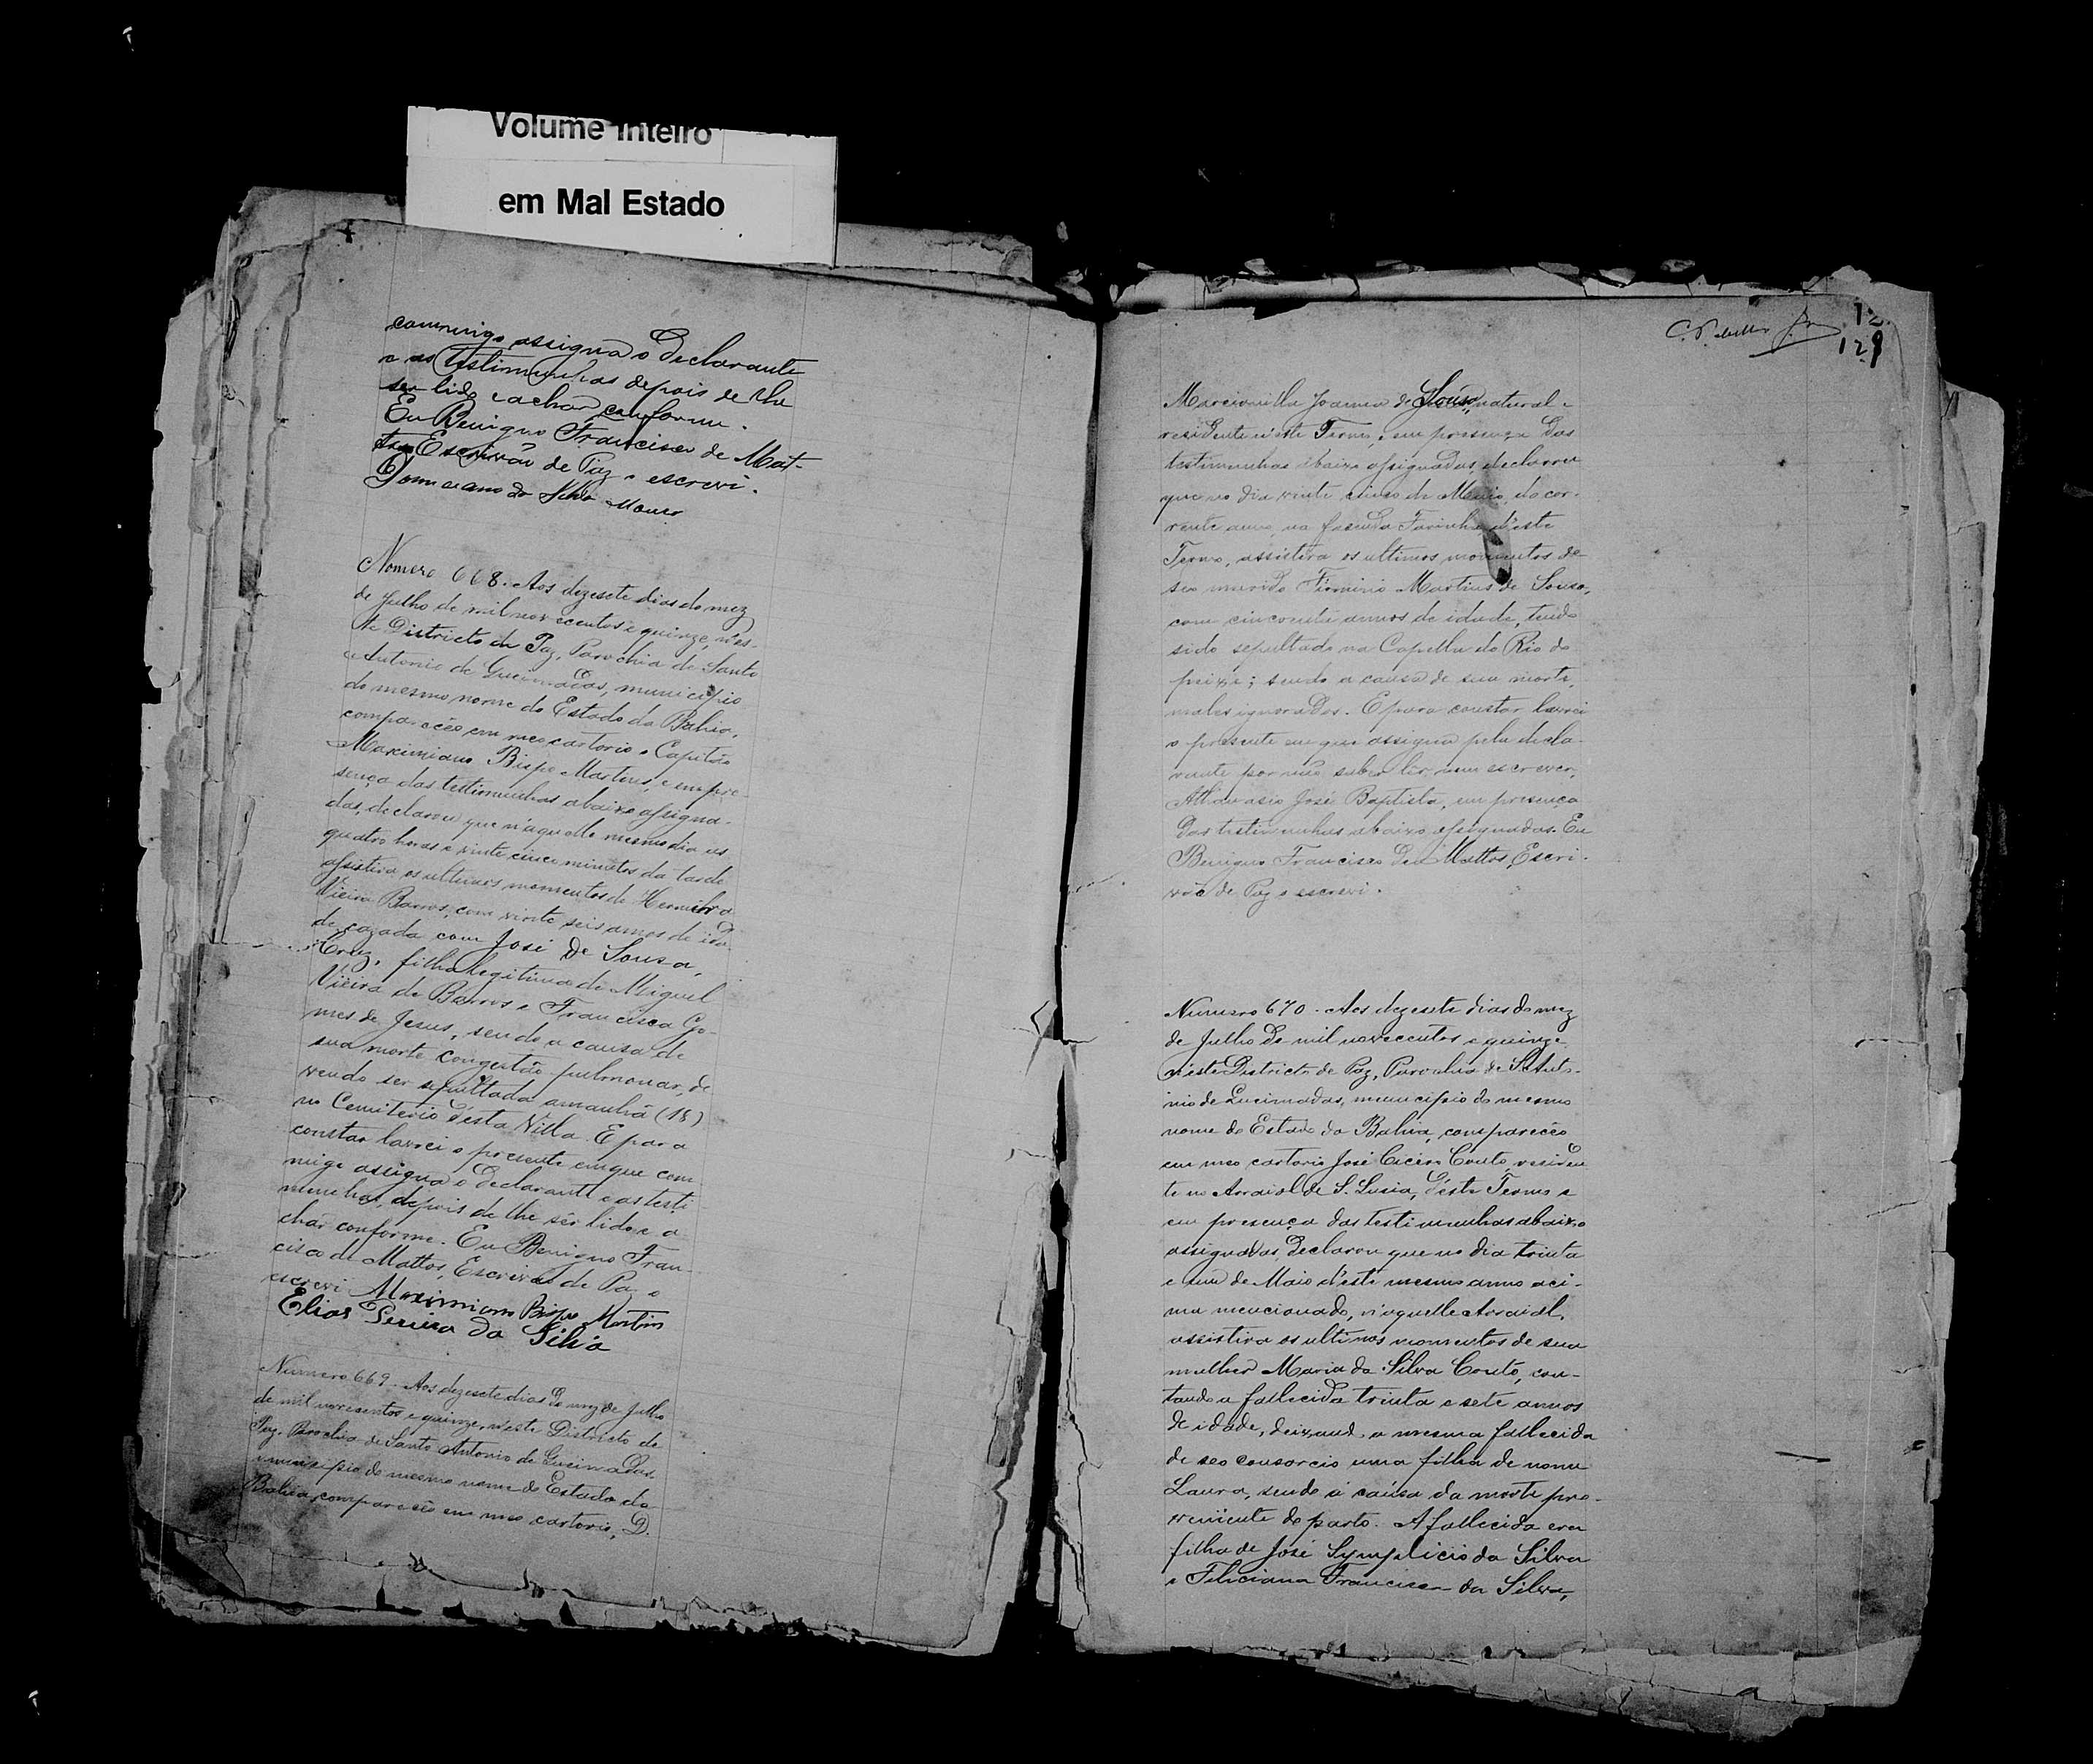 Volume Inteiro
em Mal Estado
commigo assigna o Declarante
e as testimunhas depois de lhe
ser lido e achar conforme.
Eu Benigno Francisco de Mat-
tos Escrivão de Paz o escrevi.
Numero 668. Aos dezesete dias do mez
de Julho de mil novecentos e quinze, n'es-
te Districto de Paz, Parochia de Santo
Antonio de Queimadas, municipio
do mesmo nome do Estado da Bahia,
compareceo em meo cartorio o Capitão
Maximiano Bispo Martins, e em pre-
sença das testimunhas abaixo assigna-
das, declarou que n'aquelle mesmo dia as
quatro horas e vinte cinco minutos da tarde
assistira os ultimos momentos de
Vieira Barros, com vinte seis annos de ida-
de, cazada com José de Sousa
Cruz, filha legitima de Miguel
Vieira de Barros e Francisca Go-
mes de Jesus, sendo a causa de
sua morte congestão pulmonar, de-
vendo ser sepultada amanhã (18)
no Cemiterio d'esta Villa. E para
constar lavrei o presente em que com-
migo assigna o Declarante e as testi-
munhas, depois de lhe ser lido e a-
char conforme. Eu Benigno Fran-
cisco de Mattos, Escrivão de Paz o
escrevi Maximiano Bispo Martins
Elias Pereira da Silva
Numero 669 - Aos dezesete dias do mez de Julho
de mil novesentos e quinze, n'este Districto de
Paz, Parochia de Santo Antonio de Queimadas,
municipio do mesmo nome do Estado da
Bahia, compareceo em meo cartorio, D.
12
129
Marcionilla Joanna de Sousa, natural e
residente n'este Termo, e em presença das
testimunhas abaixo assignadas, declarou
que no dia vinte cinco de Maio, do cor-
rente anno, na fasenda Farinha d'este
Termo, assistira os ultimos momentos de
seo marido Firmino Martins de Sousa,
com cincoenta annos de idade, tendo
sido sepultado na Capella do Rio do
peixe; sendo a causa de sua morte,
males ignorados. E para constar lavrei
o presente em que assigna pela decla-
rante por não saber ler nem escrever,
Athanasio José Baptista, em presença
das testimunhas abaixo assignadas. Eu
Benigno Francisco de Mattos, Escri-
vão de Paz o escrevi.
Numero 670 - Aos dezesete dias do mez
de Julho de mil novecentos e quinze
n'este Districto de Paz, Parochia de S. Anto-
nio de Queimadas, municipio do mesmo
nome do Estado da Bahia, compareceo
em meo cartorio José Cicero Couto, residen-
te no Arraial de S. Lusia, d'este Termo e
em presença das testimunhas abaixo
assignadas, Declarou que no dia trinta
e um de Maio d'este mesmo anno aci-
ma mencionado, n'aquelle Arraial,
assistira os ultimos momentos de sua
mulher Maria da Silva Couto, con-
tando a fallecida trinta e sete annos
de idade, deixando a mesma fallecida
de seo consorcio uma filha de nome
Laura, sendo a causa da morte pro-
veniente do parto. A fallecida era
filha de José Symplicio da Silva
e Feliciana Francisca da Silva,